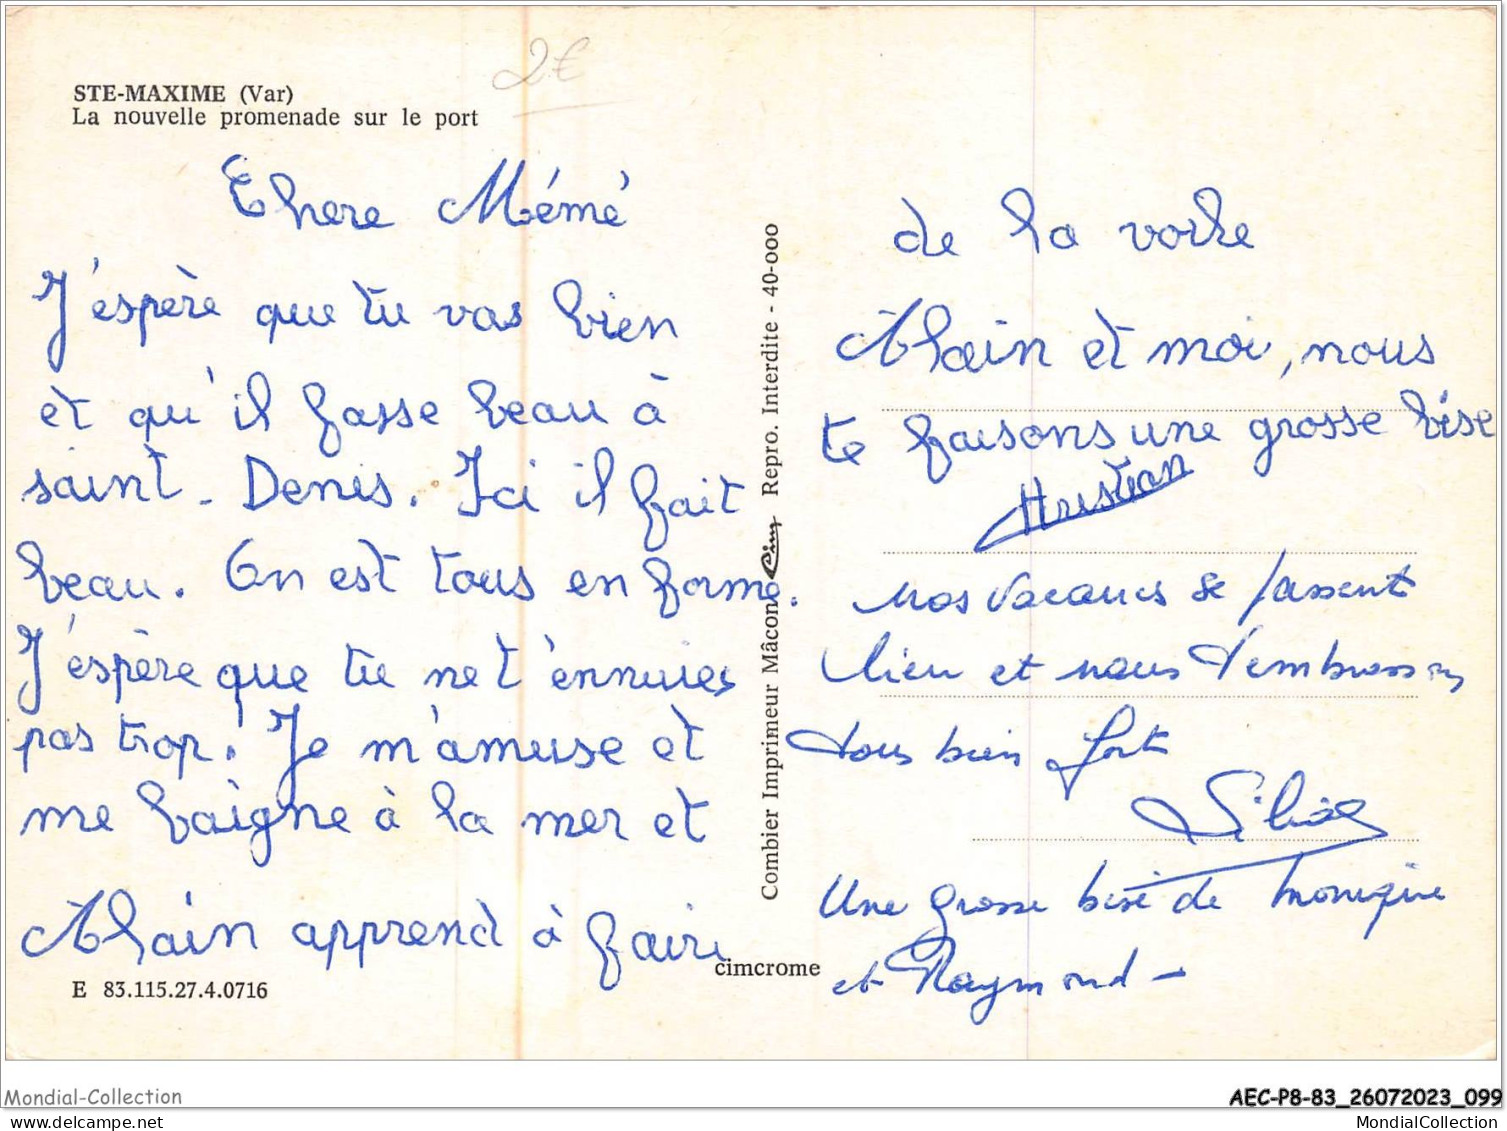 2€
STE-MAXIME (Var)
La nouvelle promenade sur le port
Chere Mémé
J'espère que tu vas bien
et qu'il fasse beau à
saint-Denis. Ici il fait
beau. On est tous en forme.
J'espère que tu ne t'ennuies
pas trop. Je m'amuse et
me baigne à la mer et
Alain apprend à faire
E 83.115.27.4.0716
cimcrome
Combier Imprimeur Mâcon Cim Repro. Interdite - 40-000
de la voile
Alain et moi, nous
te faisons une grosse bise
Christian
Nos vacances se passent
bien et nous t'embrassons
tous bien fort
Une grosse bise de Monique
et Raymond -
Mondial-Collection
AEC-P8-83_26072023_099
MondialCollection